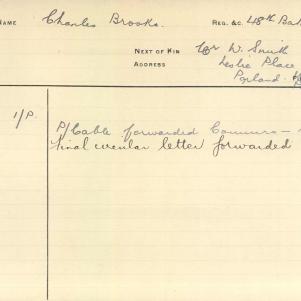 NAME Charles Brooks. REG. &C. 48th Bat
NEXT OF KIN W. Smith
ADDRESS Leslie Place
Porland
1/P. P/Cable forwarded Commrs
final circular letter forwarded